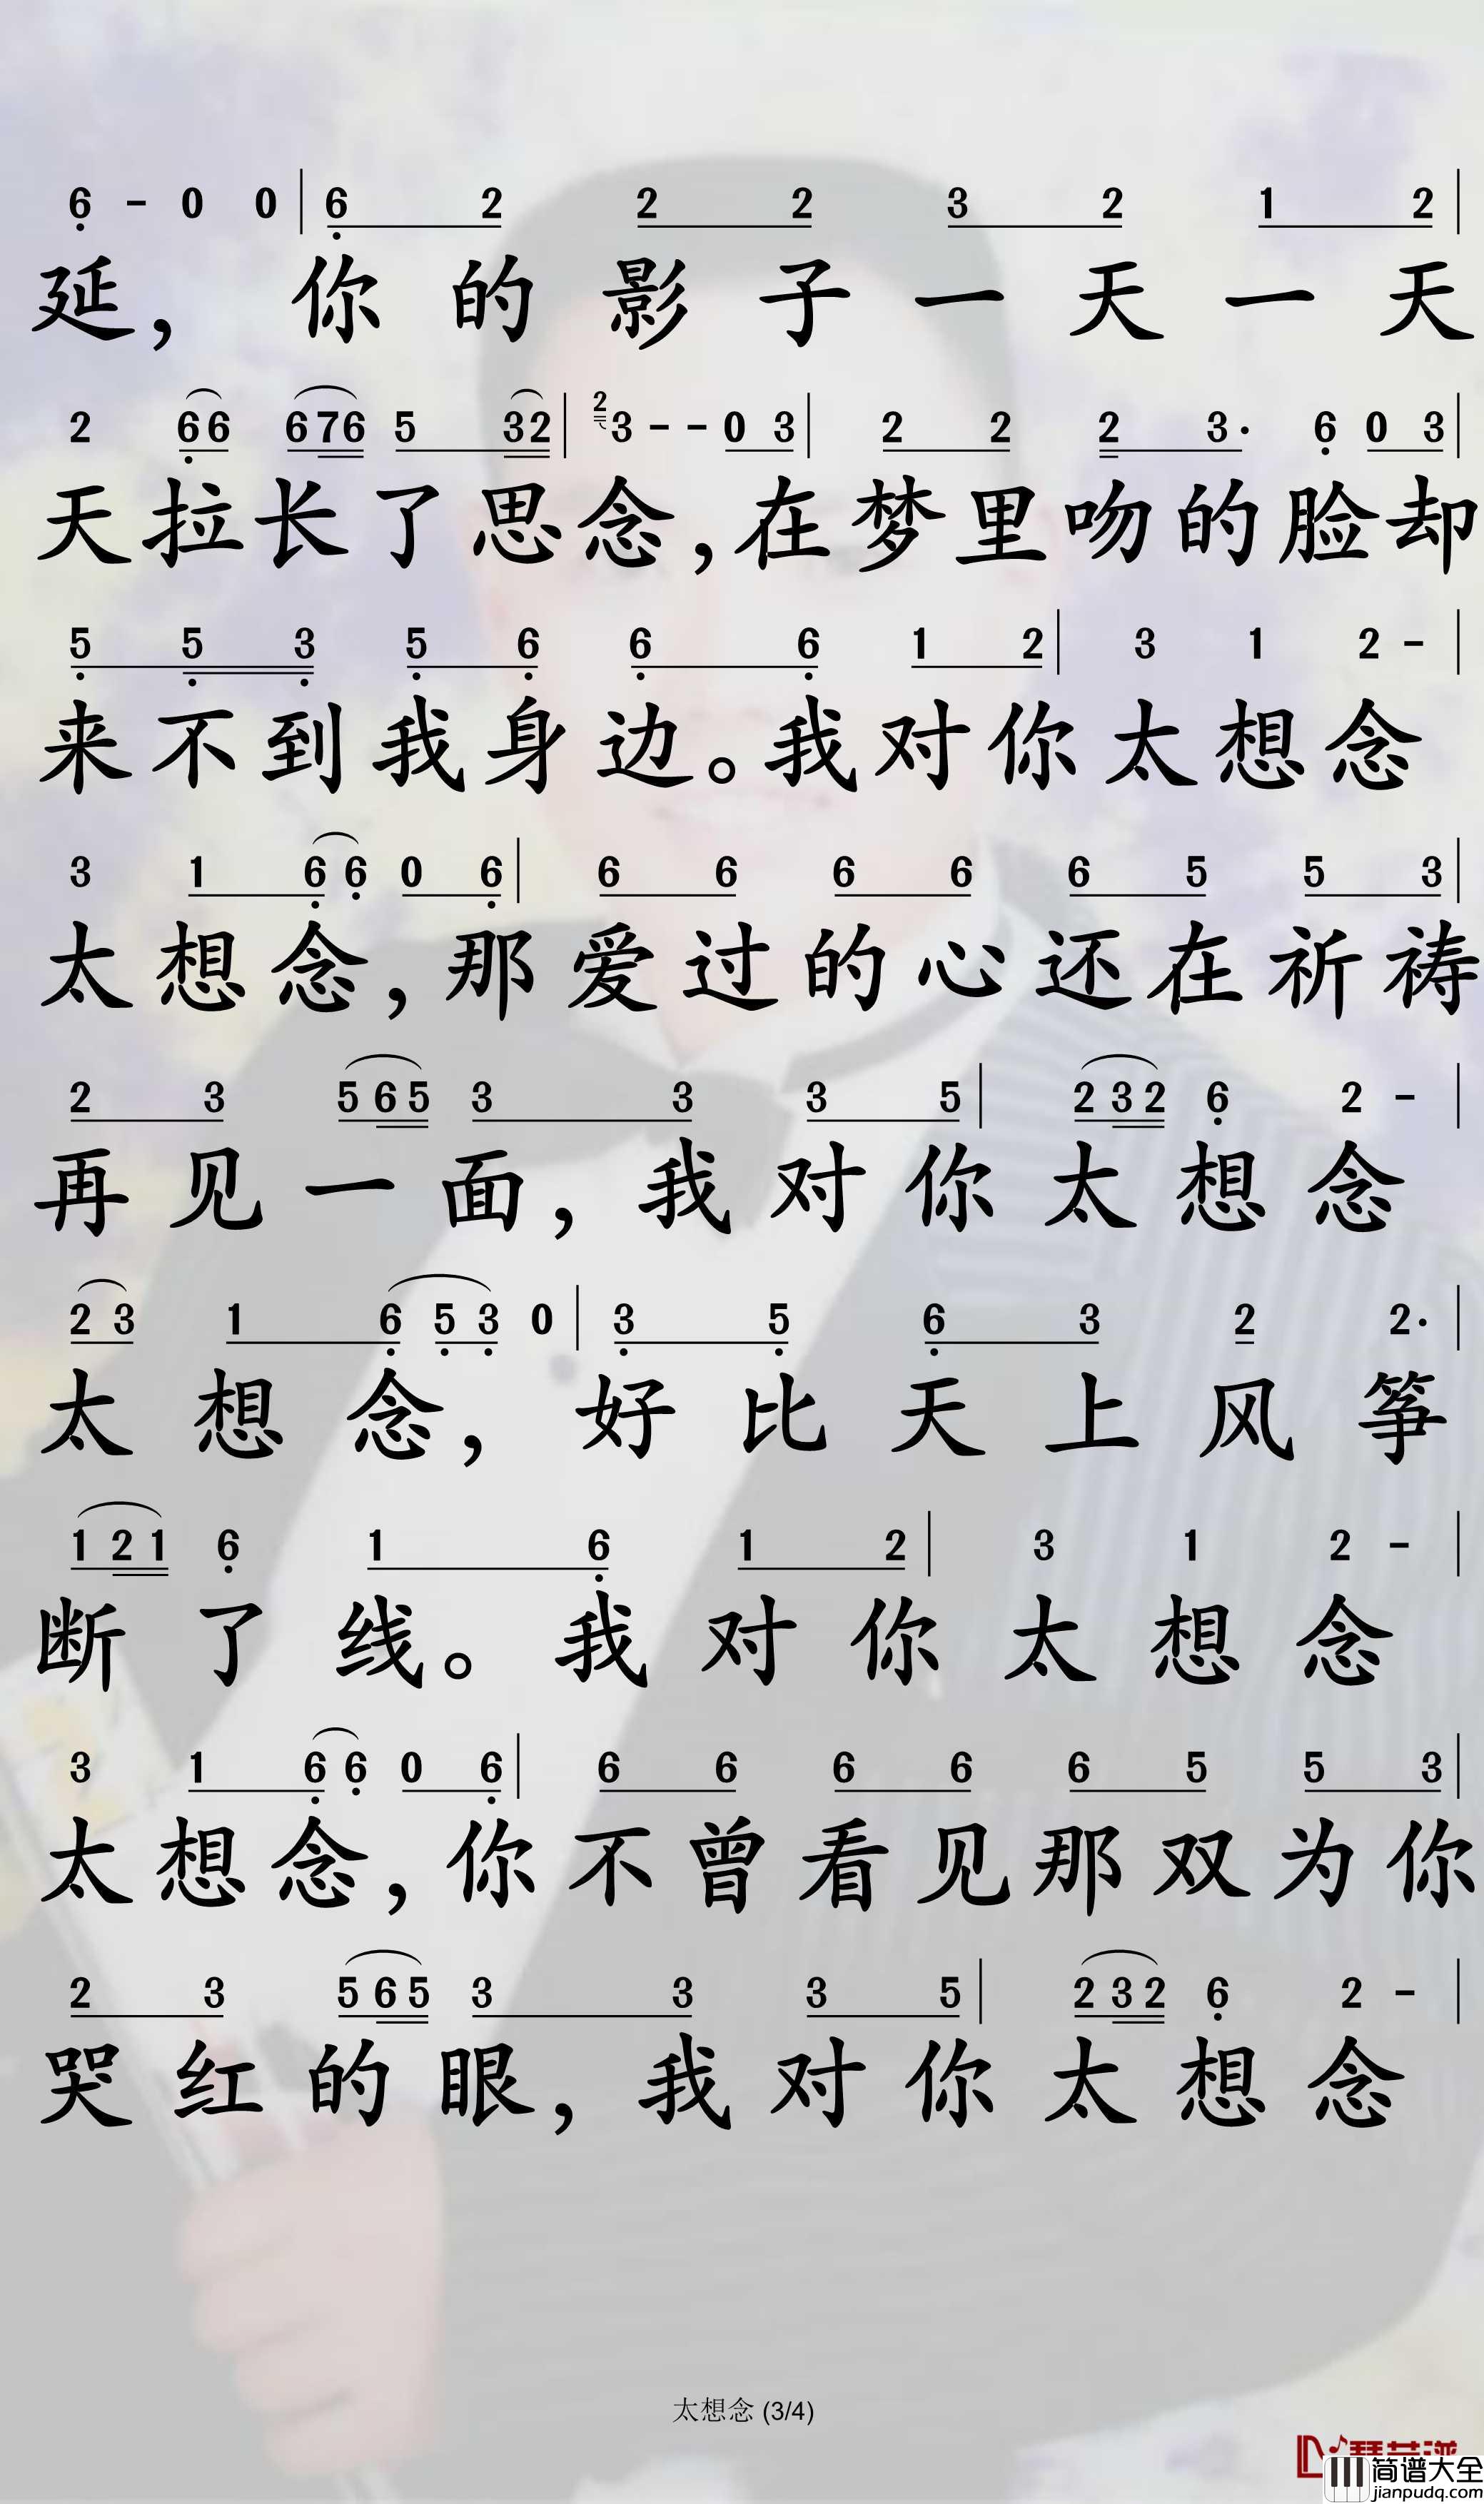 6 - 0 0 | 6 2 2 2 3 2 1 2 |
延，你的影子一天一天
2 6 6 6 7 6 5 3 2 | 2 3 - - 0 3 | 2 2 2 3· 6 0 3 |
天拉长了思念，在梦里吻的脸却
5 5 3 5 6 6 6 1 2 | 3 1 2 - |
来不到我身边。我对你太想念
3 1 6 6 0 6 | 6 6 6 6 6 5 5 3 |
太想念，那爱过的心还在祈祷
2 3 5 6 5 3 3 3 5 | 2 3 2 6 2 - |
再见一面，我对你太想念
2 3 1 6 5 3 0 | 3 5 6 3 2 2· |
太想念，好比天上风筝
1 2 1 6 1 6 1 2 | 3 1 2 - |
断了线。我对你太想念
3 1 6 6 0 6 | 6 6 6 6 6 5 5 3 |
太想念，你不曾看见那双为你
2 3 5 6 5 3 3 3 5 | 2 3 2 6 2 - |
哭红的眼，我对你太想念
太想念 (3/4)
简谱大全
jianpudq.com